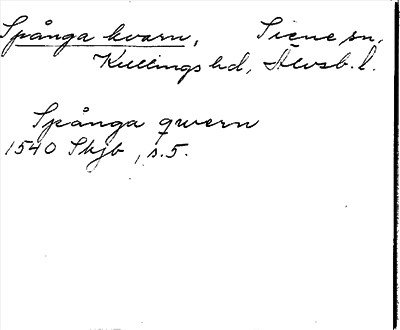 Spånga kvarn, Siene sn,
Kullings hd, Älvsb. l.
Spånga qwern
1540 Skjb, s. 5.